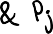 & Pj